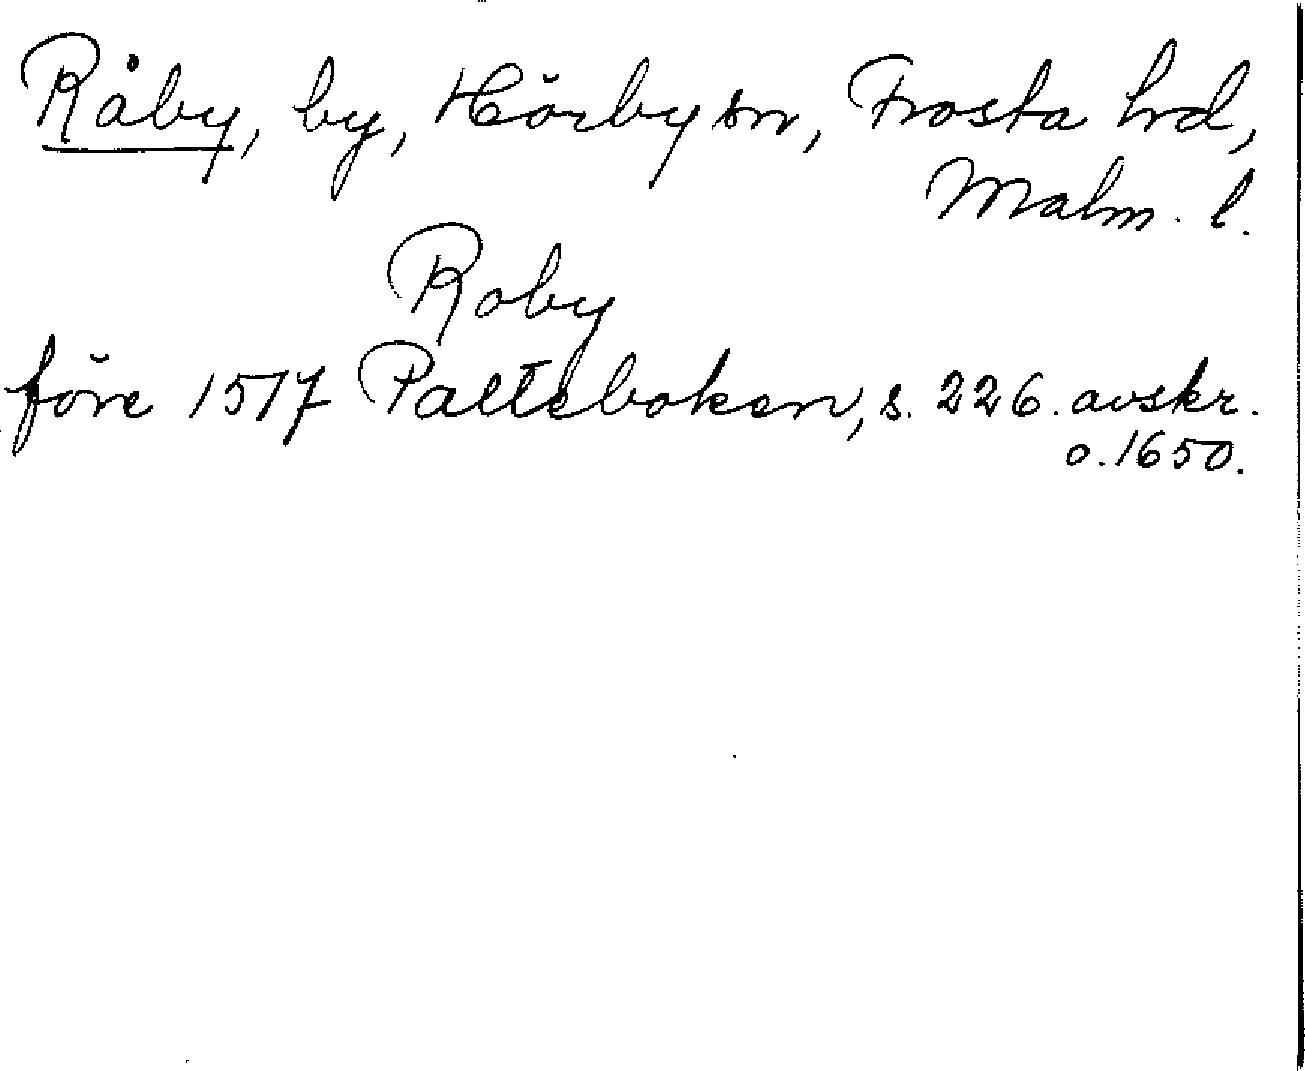 Råby, by, Hörby sn, Frosta hrd,
Malm. l.
Roby
före 1517 Palteboken, s. 226. avskr.
o. 1650.